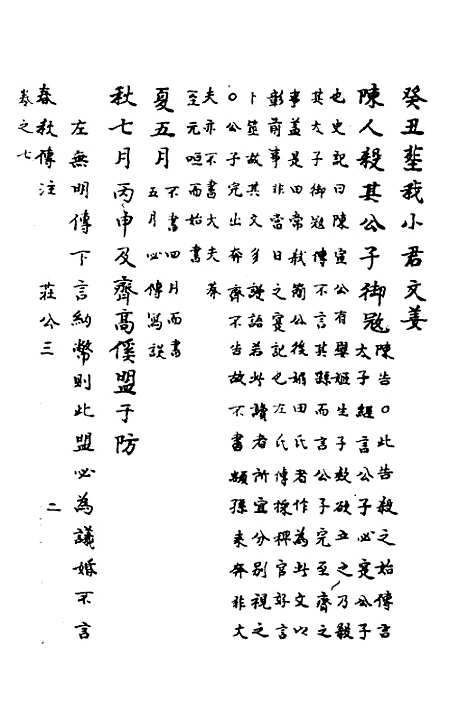 癸丑塟我小君文姜
陳人殺其公子御冦陳告〇此告殺之始傳言
太子經言公子必寔公子
也史記曰陳宣公有嬖姬生子款欲立之乃殺
其太子御冦傳不言其孫而言公子完至齊之
事盖是田常弑簡公後媚田氏者作為此文以
彰前事非當日之寔記也左氏傳採稗官好言
卜筮故其文多謎詒若此讀者所宜分别視之
〇公子完出奔齊不告故不書顓孫来奔非大
夫亦不書大夫奔
至元咺而始書
夏五月不書四月而書
五月必傳寫誤
秋七月丙申及齊高傒盟于防
左無明傳下言納幣則此盟必為議婚不言
春秋傳注 莊公三 二
卷之七